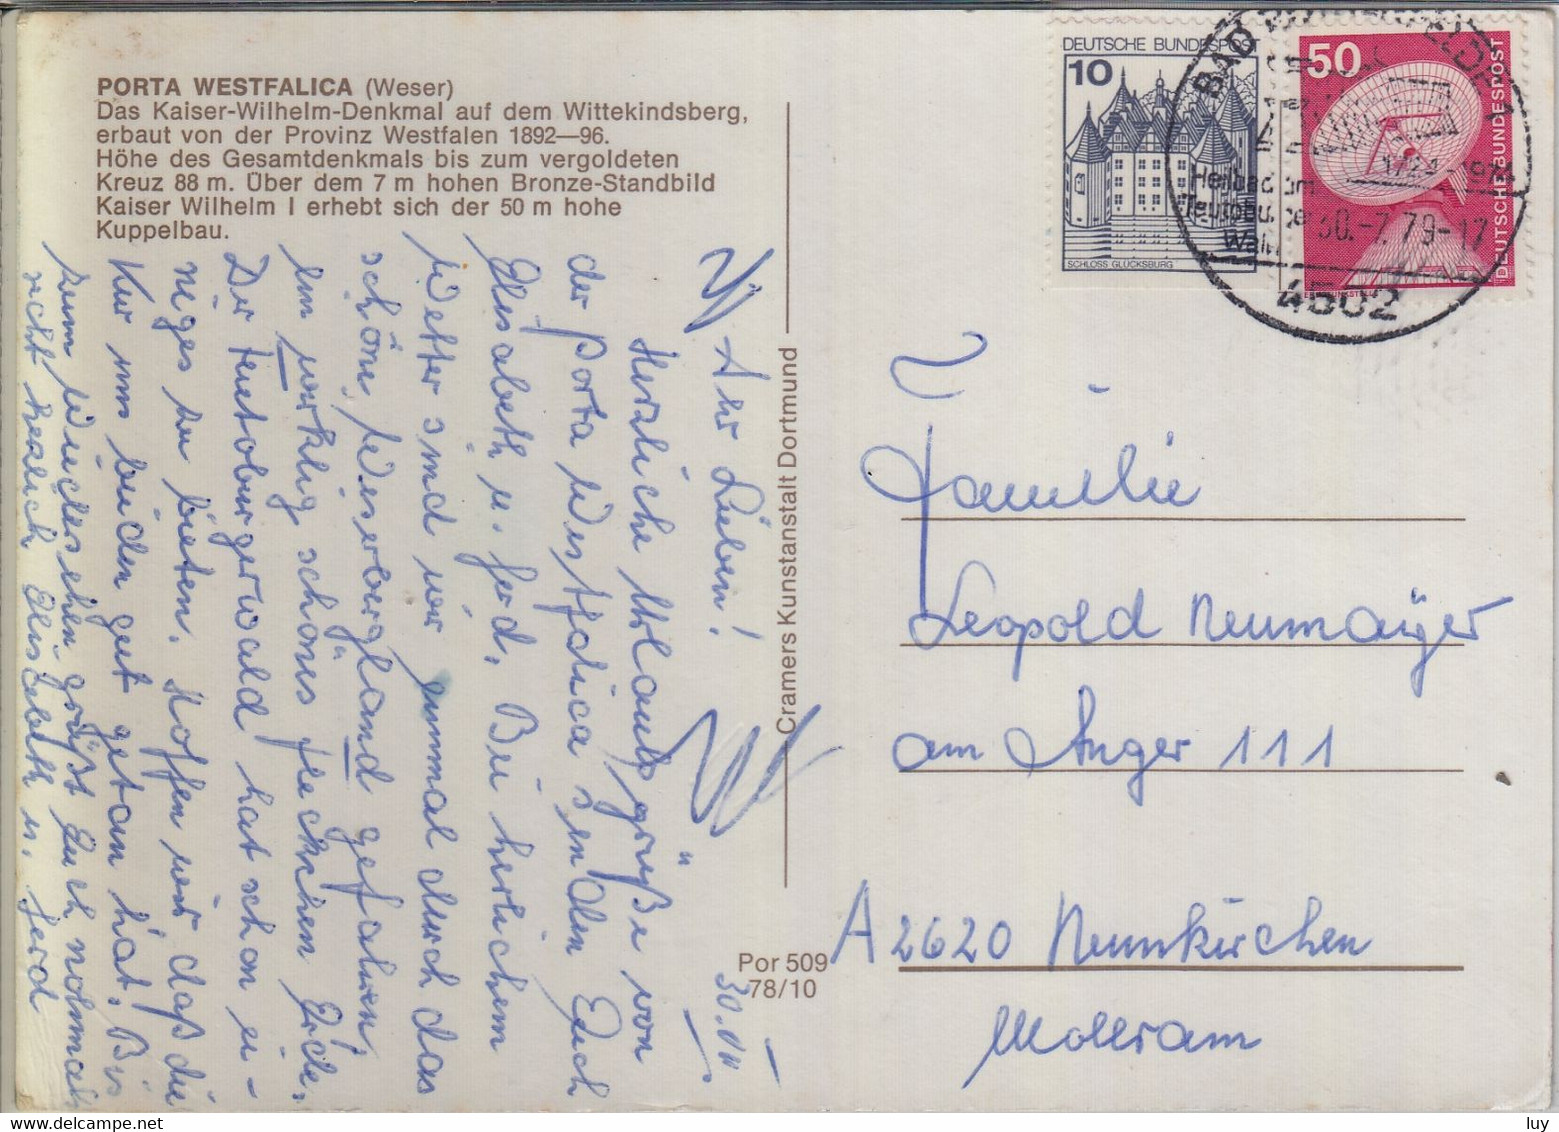 PORTA WESTFALICA (Weser)
Das Kaiser-Wilhelm-Denkmal auf dem Wittekindsberg,
erbaut von der Provinz Westfalen 1892—96.
Höhe des Gesamtdenkmals bis zum vergoldeten
Kreuz 88 m. Über dem 7 m hohen Bronze-Standbild
Kaiser Wilhelm I erhebt sich der 50 m hohe
Kuppelbau.
30.VII
Ihr Lieben!
Herzliche Urlaubsgrüße von
der Porta Westfalica senden Euch
Elisabeth u. Ferd. Bei herlichem
Wetter sind wir gemmal durch das
schöne Weserbergland gefahren,
Ein wirklig schönes fleckchen Erde.
Der Teutoburgerwald hat schon ei-
niges zu bieten. Hoffen wir daß die
Kur uns beiden gut getan hat. Bis
zum Wiedersehen grüßt Euch nochmals
recht herzlich Elisabeth u. Ferd
Cramers Kunstanstalt Dortmund
Por 509
78/10
DEUTSCHE BUNDESPOST
10
SCHLOSS GLÜCKSBURG
50
DEUTSCHE BUNDESPOST
BAD
1724-1974
Heilbad im
Teutoburger
Wald
30.-7.79-17
4502
Familie
Leopold Neumayer
am Anger 111
A 2620 Neunkirchen
Mollram
luy